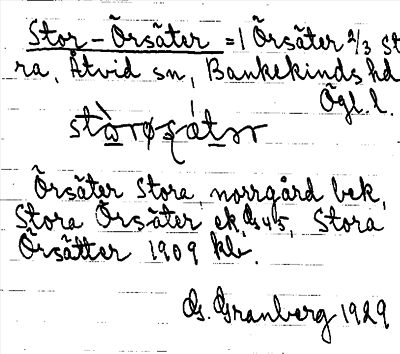 Stor-Örsäter = 1 Örsäter 2/3 St
ra, Åtvid sn, Bankekinds hd
Ögl. l.
Örsäter Stora, norrgård bek,
Stora Örsäter ek, Stora
Örsätter 1909 kbr.
G. Granberg 1929